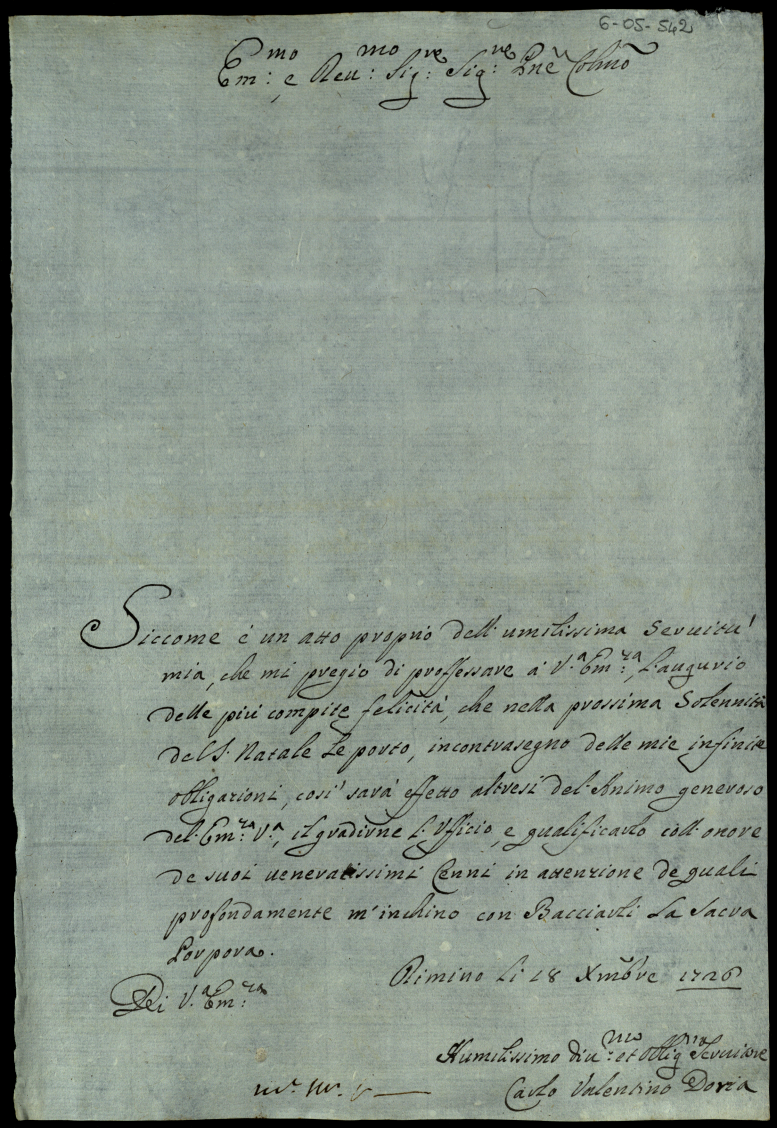 6-05-542
Em:mo e Reu:mo Sig:re Sig:re Pne Colmo
Siccome é un atto proprio dell' umilissima seruitu'
mia, che mi pregio di proffessare a' V.a Em:za, l'augurio
delle piú compite felicità, che nella prossima Solennità
del S. Natale Le porto, incontrasegno delle mie infinite
obligazioni, cosi' sarà effetto altresi del' Animo generoso
del' Em:za V.a, il gradirne l' Vfficio, e qualificarlo coll' onore
de suoi ueneratissimi Cenni in attenzione de quali
profondamente m' inchino con Bacciarli la Sacra
Porpora.
Rimino li 18 Xmbre 1726
Di V.a Em:za
Humilissimo Diu:mo et Oblig:mo Seruitore
Carlo Valentino Doria